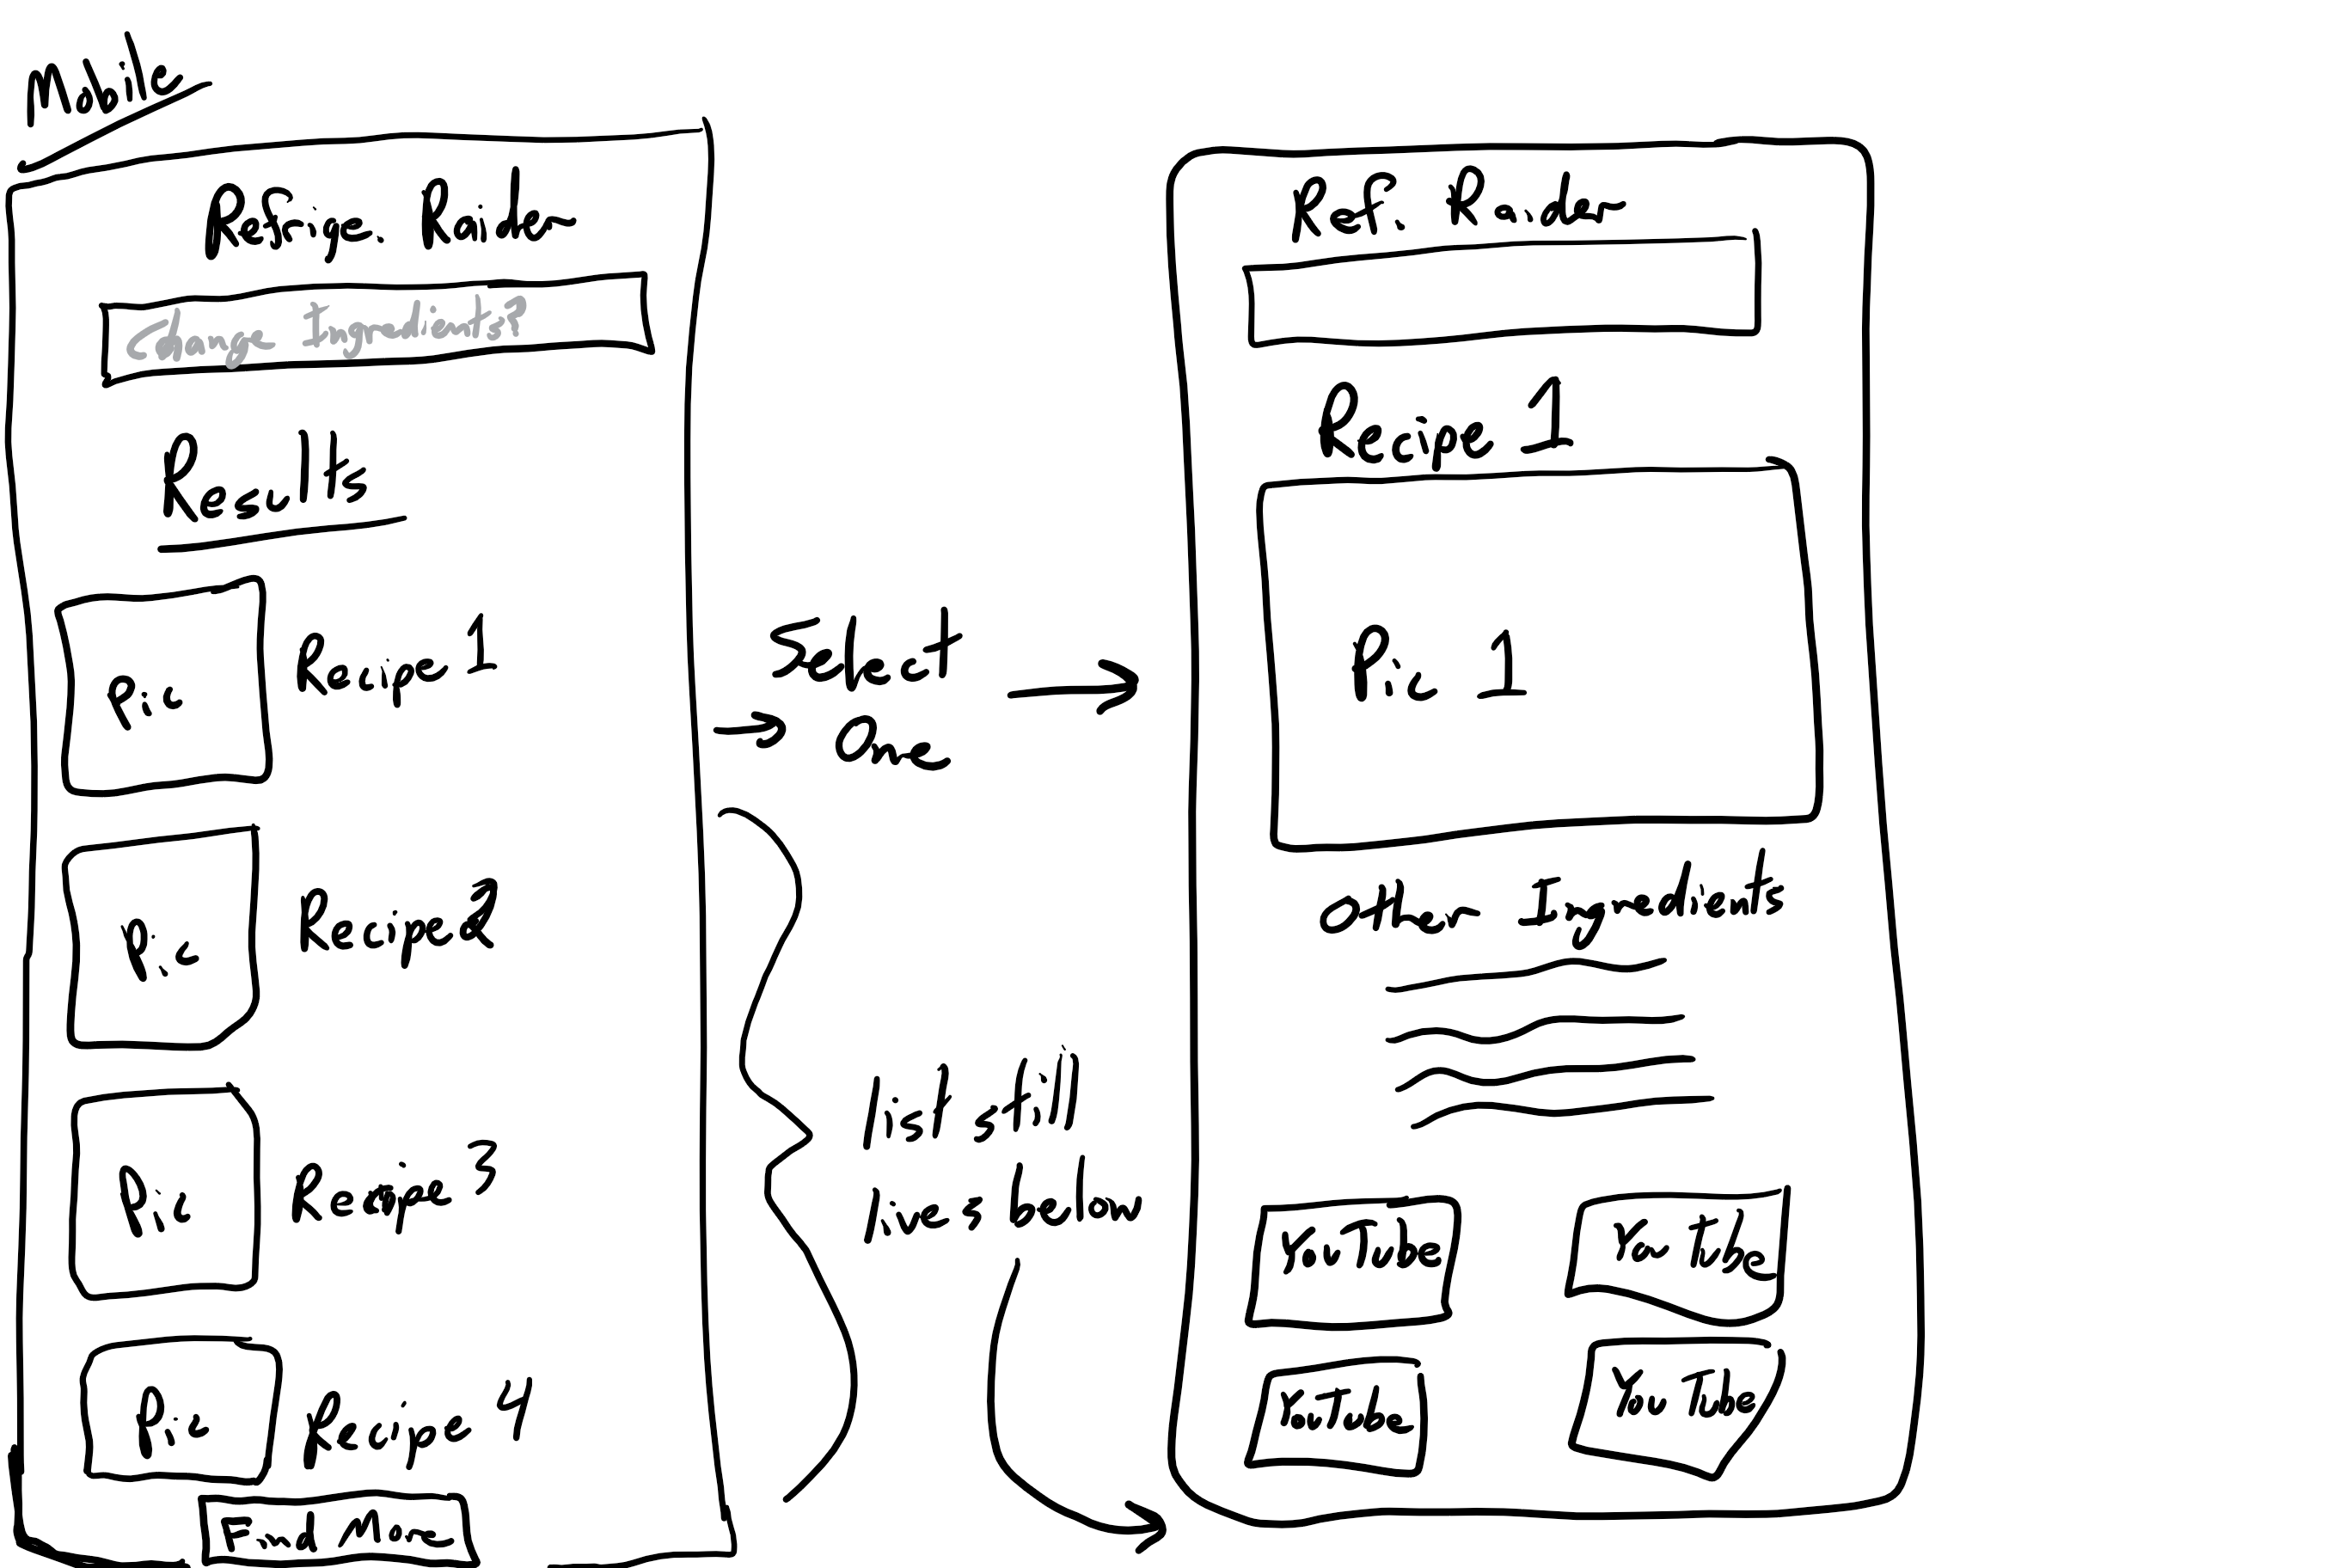 Mobile
Refrige. Raider
Change Ingredients?
Results
Pic
Recipe 1
Pic
Recipe 2
Pic
Recipe 3
Pic
Recipe 4
Find More
Select
One
list still
lives below
Ref. Raider
Recipe 1
Pic 1
Other Ingredients
YouTube
YouTube
YouTube
YouTube